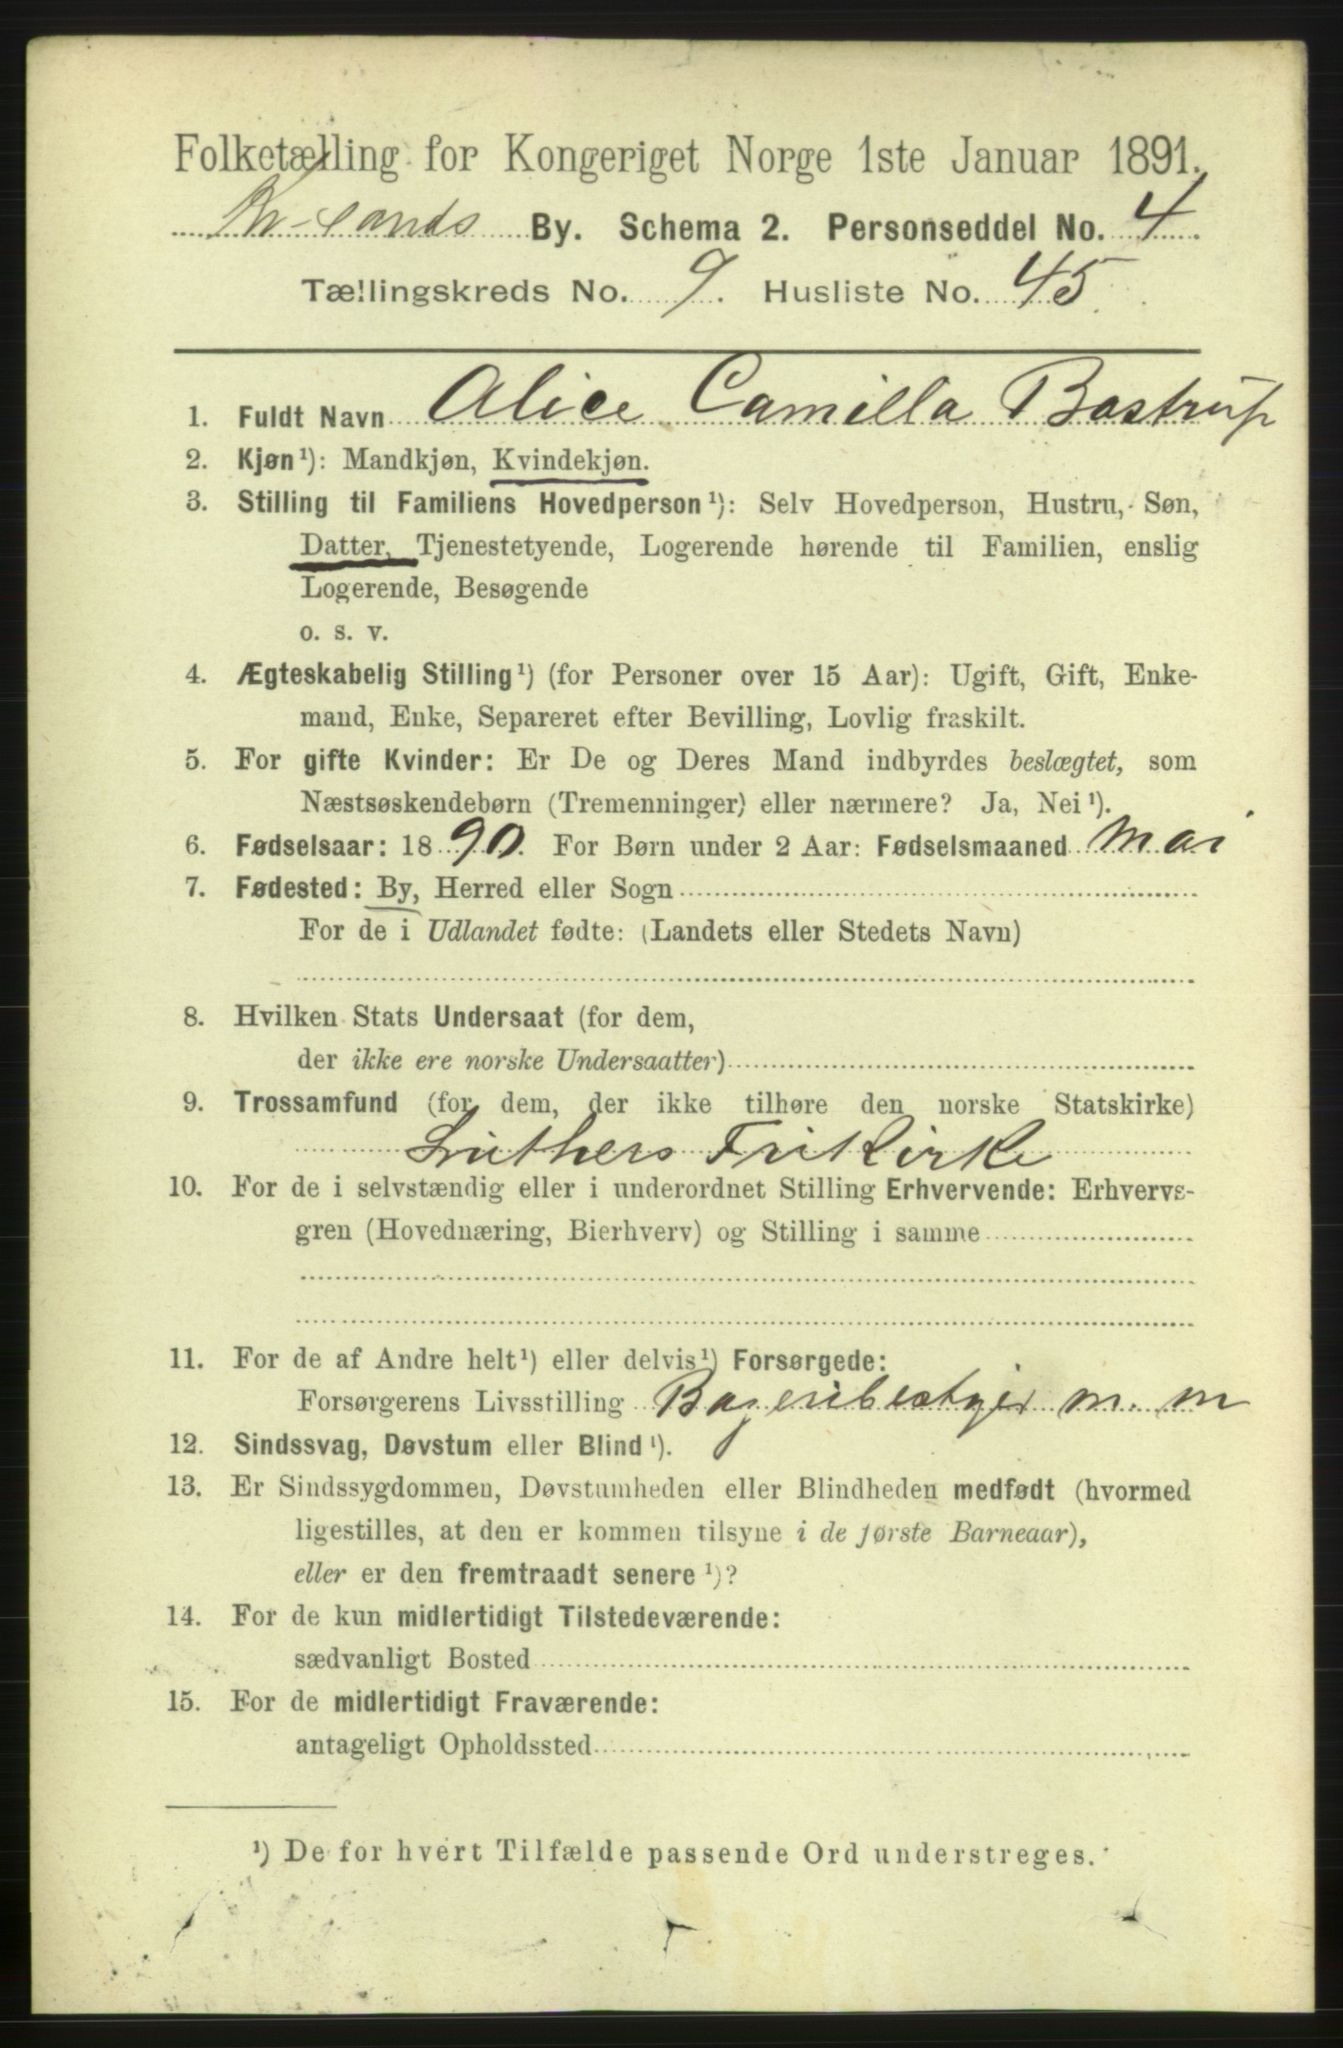 Folketælling for Kongeriget Norge 1ste Januar 1891.
Kr-sands By. Schema 2. Personseddel No. 4
Tællingskreds No. 9. Husliste No. 45
1. Fuldt Navn Alice Camilla Bastrup
2. Kjøn¹): Mandkjøn, Kvindekjøn.
3. Stilling til Familiens Hovedperson¹): Selv Hovedperson, Hustru, Søn,
Datter, Tjenestetyende, Logerende hørende til Familien, enslig
Logerende, Besøgende
o. s. v.
4. Ægteskabelig Stilling¹) (for Personer over 15 Aar): Ugift, Gift, Enke-
mand, Enke, Separeret efter Bevilling, Lovlig fraskilt.
5. For gifte Kvinder: Er De og Deres Mand indbyrdes beslægtet, som
Næstsøskendebørn (Tremenninger) eller nærmere? Ja, Nei¹).
6. Fødselsaar: 1890. For Børn under 2 Aar: Fødselsmaaned Mai
7. Fødested: By, Herred eller Sogn
For de i Udlandet fødte: (Landets eller Stedets Navn)
8. Hvilken Stats Undersaat (for dem,
der ikke ere norske Undersaatter)
9. Trossamfund (for dem, der ikke tilhøre den norske Statskirke)
Luthers Frikirke
10. For de i selvstændig eller i underordnet Stilling Erhvervende: Erhvervs-
gren (Hovednæring, Bierhverv) og Stilling i samme
11. For de af Andre helt¹) eller delvis¹) Forsørgede:
Forsørgerens Livsstilling Bageribestyer m. m
12. Sindssvag, Døvstum eller Blind¹).
13. Er Sindssygdommen, Døvstumheden eller Blindheden medfødt (hvormed
ligestilles, at den er kommen tilsyne i de første Barneaar),
eller er den fremtraadt senere¹)?
14. For de kun midlertidigt Tilstedeværende:
sædvanligt Bosted
15. For de midlertidigt Fraværende:
antageligt Opholdssted
¹) De for hvert Tilfælde passende Ord understreges.